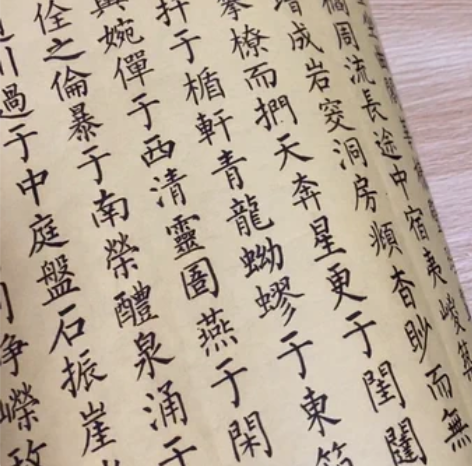 周流長途中宿夷嵕築
增成岩窔洞房頫杳眇而無
攀橑而捫天奔星更于閨闥
于楯軒青龍蚴蟉于東箱
輿婉僤于西清靈圄燕于閑
佺之倫暴于南榮醴泉涌于
川過于中庭盤石振崖
崢嶸玫